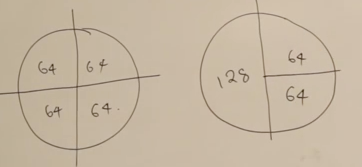 64 64
64 64.
128
64
64